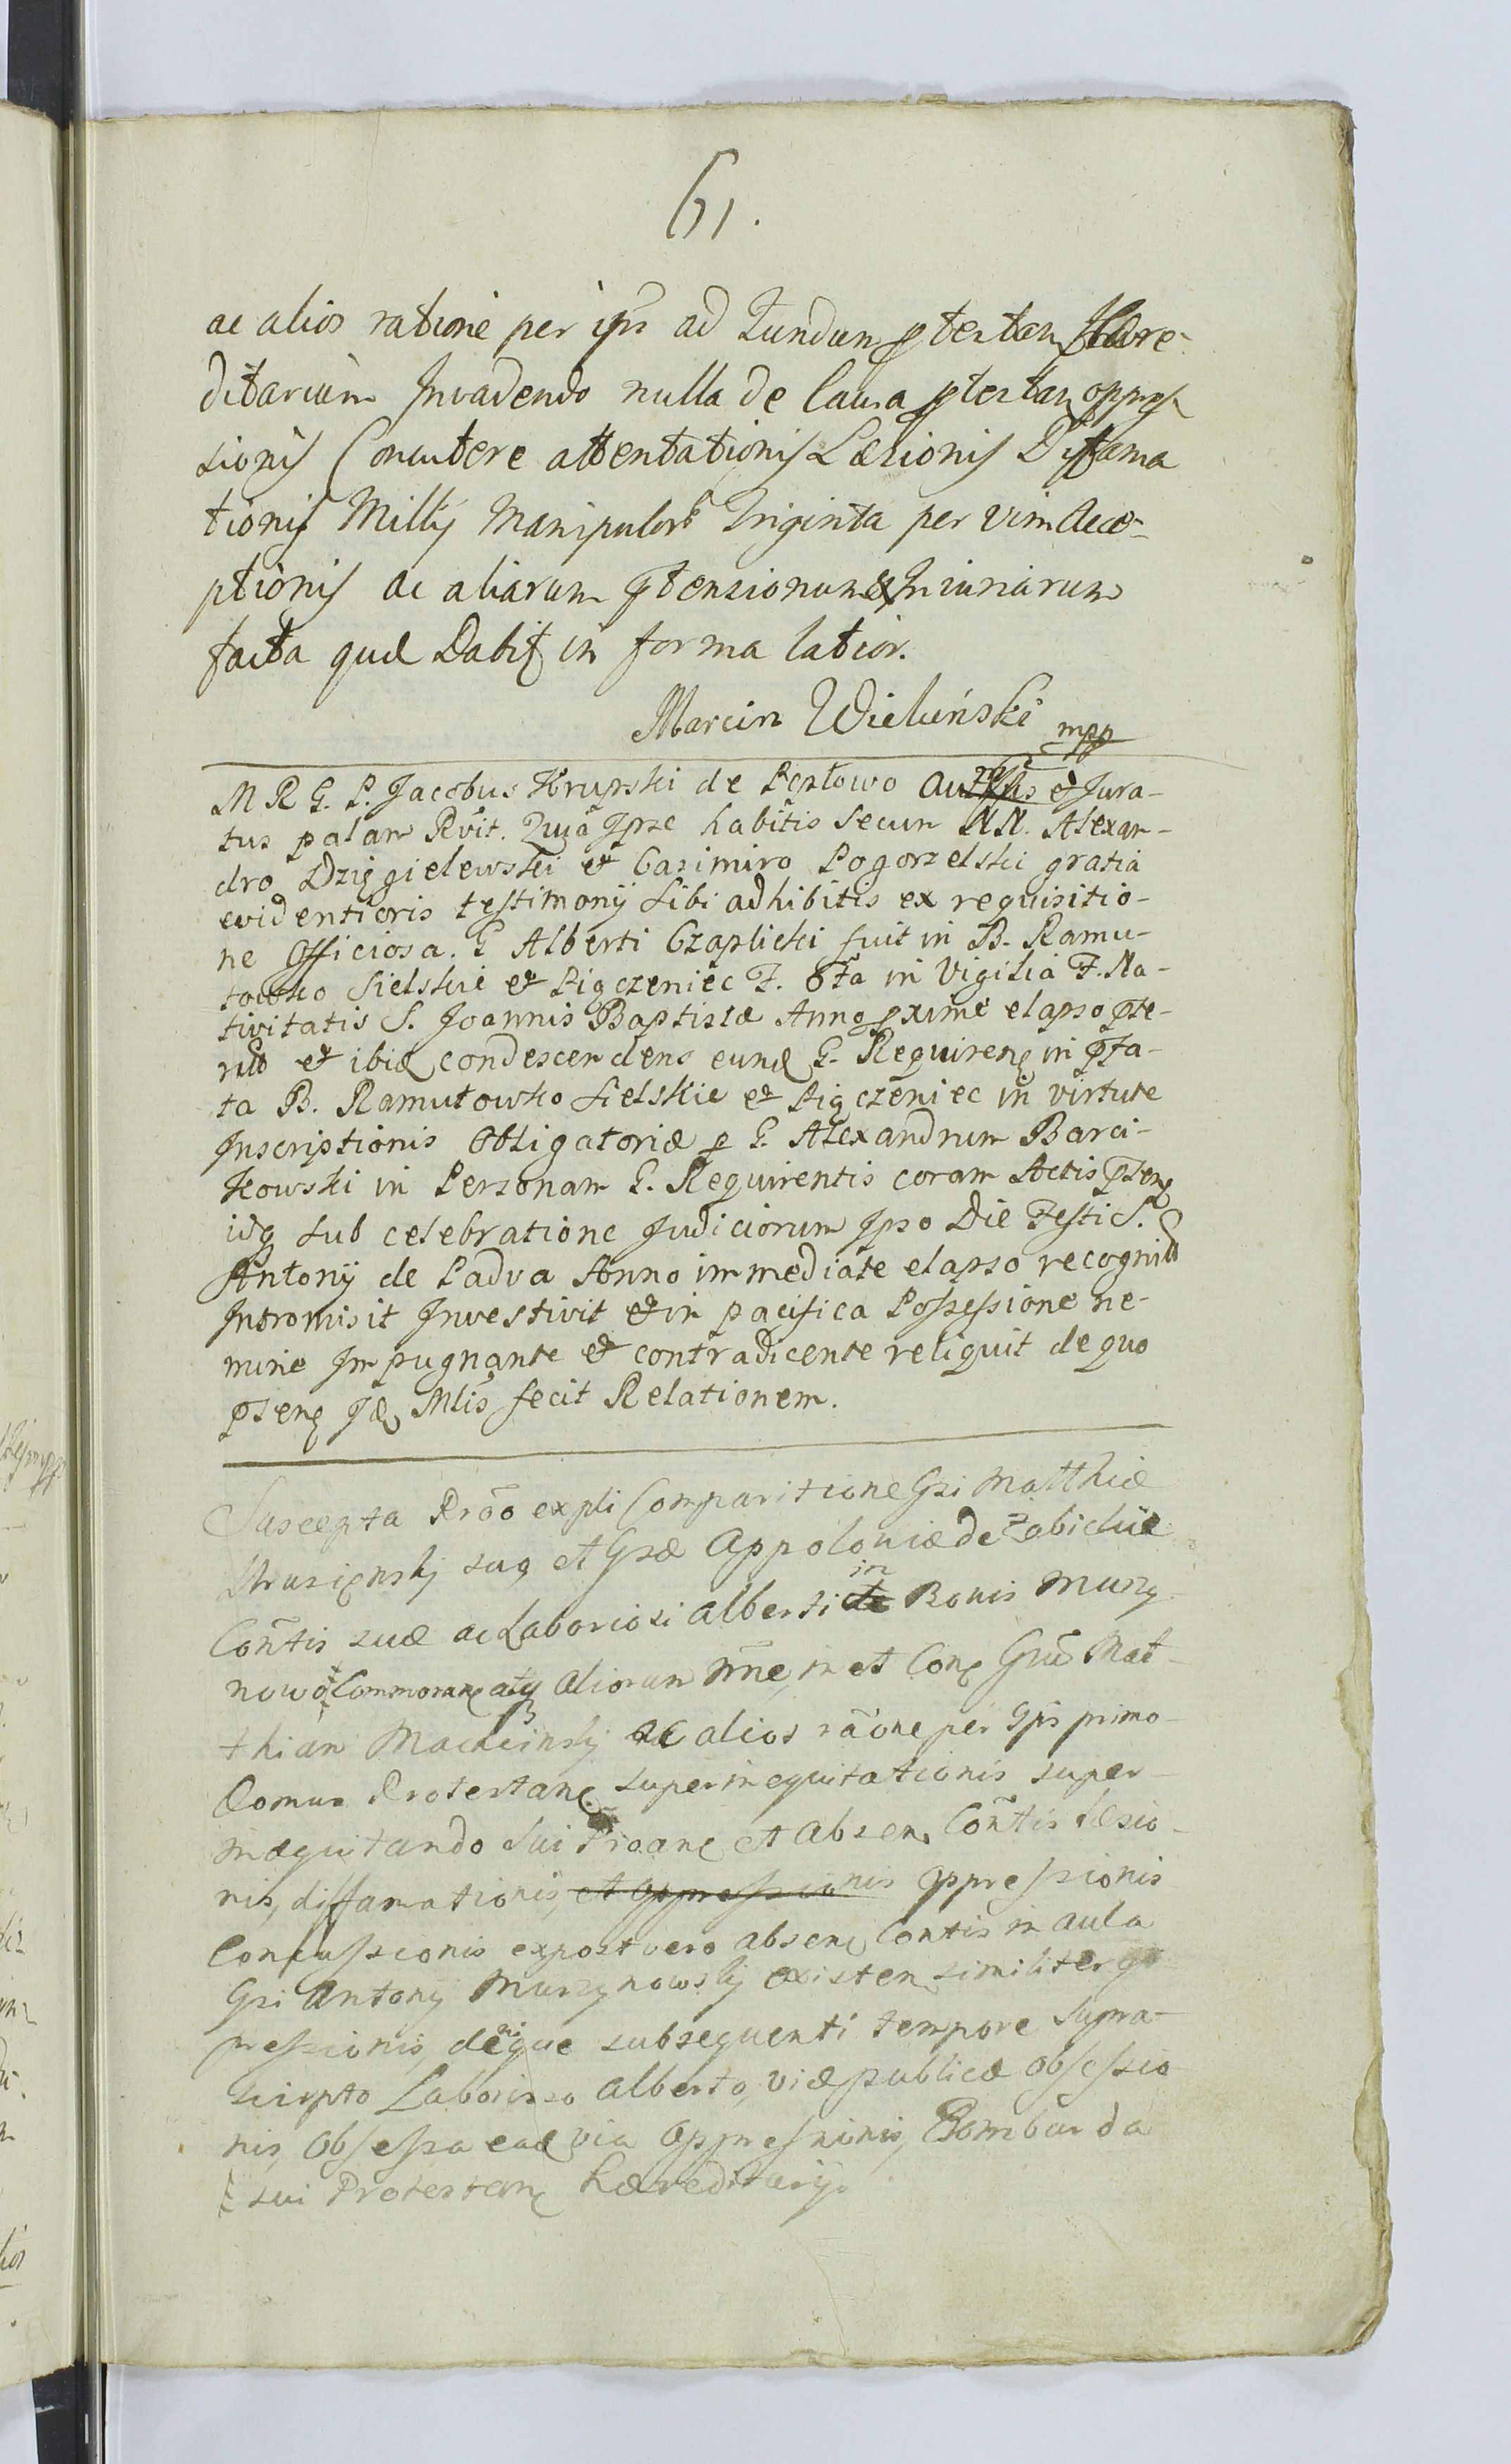 61.
ac alios ratione per ip̃s ad Fundum ptestan Hære-
ditarium Invadendo nulla de Causa ptestan oppres
sionis Concutere attentationis Læsionis Diffama
tionis Milly Manipulor̃ Triginta per vim Acce-
ptionis ac aliarum ptensionum & Iniuriarum
facta quæ Dabit in forma latior.
Marcin Wieluński mpp
M R G. P. Jacobus Krupski de Peplowo et Jura-
tus palam Rvit. Quia Ipse habitis secum NN. Alexan-
dro Dzięgielewski et Casimiro Pogorzelski gratia
evidentioris testimonij sibi adhibitis ex requisitio-
ne Officiosa. G Alberti Czaplicki fuit in B. Ramu-
towko Sielskie et Pigczeniec F. 6ta in Vigilia F. Na-
tivitatis S. Joannis Baptistæ Anno pxime elapso pte-
rito et ibid condescendens eund G. Requiren in pfa-
ta B. Ramutowko Sielskie et Pigczeniec in virtute
Inscriptionis Obligatoriæ p G. Alexandrum Barci-
kowski in Personam G. Requirentis coram Actis pten
idq sub celebratione Judiciorum Ipso Die Festi S.
Antonij de Padva Anno immediate elapso recognit
Intromisit Investivit et in pacifica Possessione ne-
mine Impugnante et contradicente reliquit de quo
psens Id Mlis fecit Relationem.
Suscepta Prõo expli Comparitione Gsi Matthiæ
suo et Gsæ Appoloniæ de Zabiclie
Cõntis suæ ac Laboriosi Alberti in Bonis Murzy
nowo Commoran atq Aliorum Nn̄e, in et Con Gsũ Mat-
thiam ac alios rãone per Ips primo
Domus Protestan superinequitationis super
inæquitando sui Proan et Absen Cõntis læsio-
nis, diffamationis, et oppressionis oppressionis
Concussionis expost vero absen Contis in aula
Gsi Antonij Murzynowskj existen similiter op
pressionis, denique subsequenti tempore supra-
scripto Laborioso Alberto, viæ publicæ obsessio
nis, Obsessa ead via oppressionis, Bombarda
sui Protestan hæreditarij.